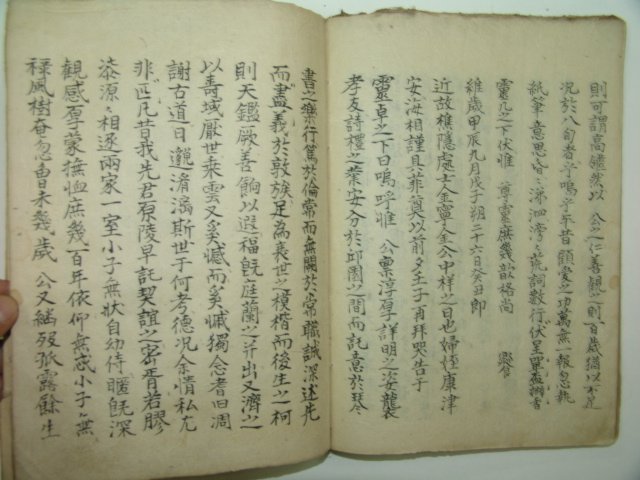 則可謂高鑣然以 公之仁善觀之則百歲猶以不足
况於八旬者乎嗚乎平昔顧愛之功萬無報忽執
紙筆意思昏昏涕泗滂滂荒詞數行伏呈單盃揪香
靈几之下伏惟 尊靈庶幾歆格尚 饗
維歲甲辰九月戊子朔二十六日癸丑卽
近故樵隱處士金寧金公中祥之日也婦姪康津
安海相謹具菲奠以前夕壬子再拜哭告于
靈卓之下曰嗚呼惟 公稟淳厚詳明之姿襲
孝友詩禮之業安分於邱園之間而託意於琴
書之樂行篤於倫常而無闕於常職誠深述先
而盡義於敦族足為衰世之模楷而後生之柯
則天鑑厥善餉以遐福旣庭蘭之并出又濟之
以壽域厭世乘雲又奚憾而奚慽獨念者旧凋
謝古道日邈淆漓斯世于何考德况余情私尢
非匹凡昔我先君原陵早託契誼之密胥若膠
漆源源相逐兩家一室小子無狀自幼侍暱旣深
觀感亶蒙撫恤庶幾百年依仰無忒小子無
祿風樹奄忽曾未幾歲 公又繼歿孤露餘生